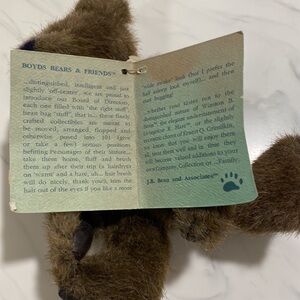 BOYDS BEARS & FRIENDS™
...distinguished, intelligent and just
slightly 'off-center'... we are proud to
introduce our Board of Directors,
each one filled with "the right stuff",
bean bag "stuff", that is... these finely
crafted collectibles are meant to
be moved, arranged, flopped and
otherwise posed into 101 (give
or take a few) serious positions
befitting Personages of their Stature...
take them home, fluff and brush
them up after their trip (a hairdryer
on 'warm' and a hare, uh... hair brush
will do nicely, thank you!), trim the
hair out of the eyes if you like a more
"wide awake" look (but I prefer the
full sissy look myself)... and then
start hugging!
whether your tastes run to the
distinguished nature of Winston B.
the elegant understatement of
Livingston R. Hare... or the slightly
eccentric charm of Ernest Q. Grimilkin,
we know that you will enjoy them
all, use them well and in time they
will become valued additions to your
own Company, Collection, or... Family.
J.B. Bean and Associates™